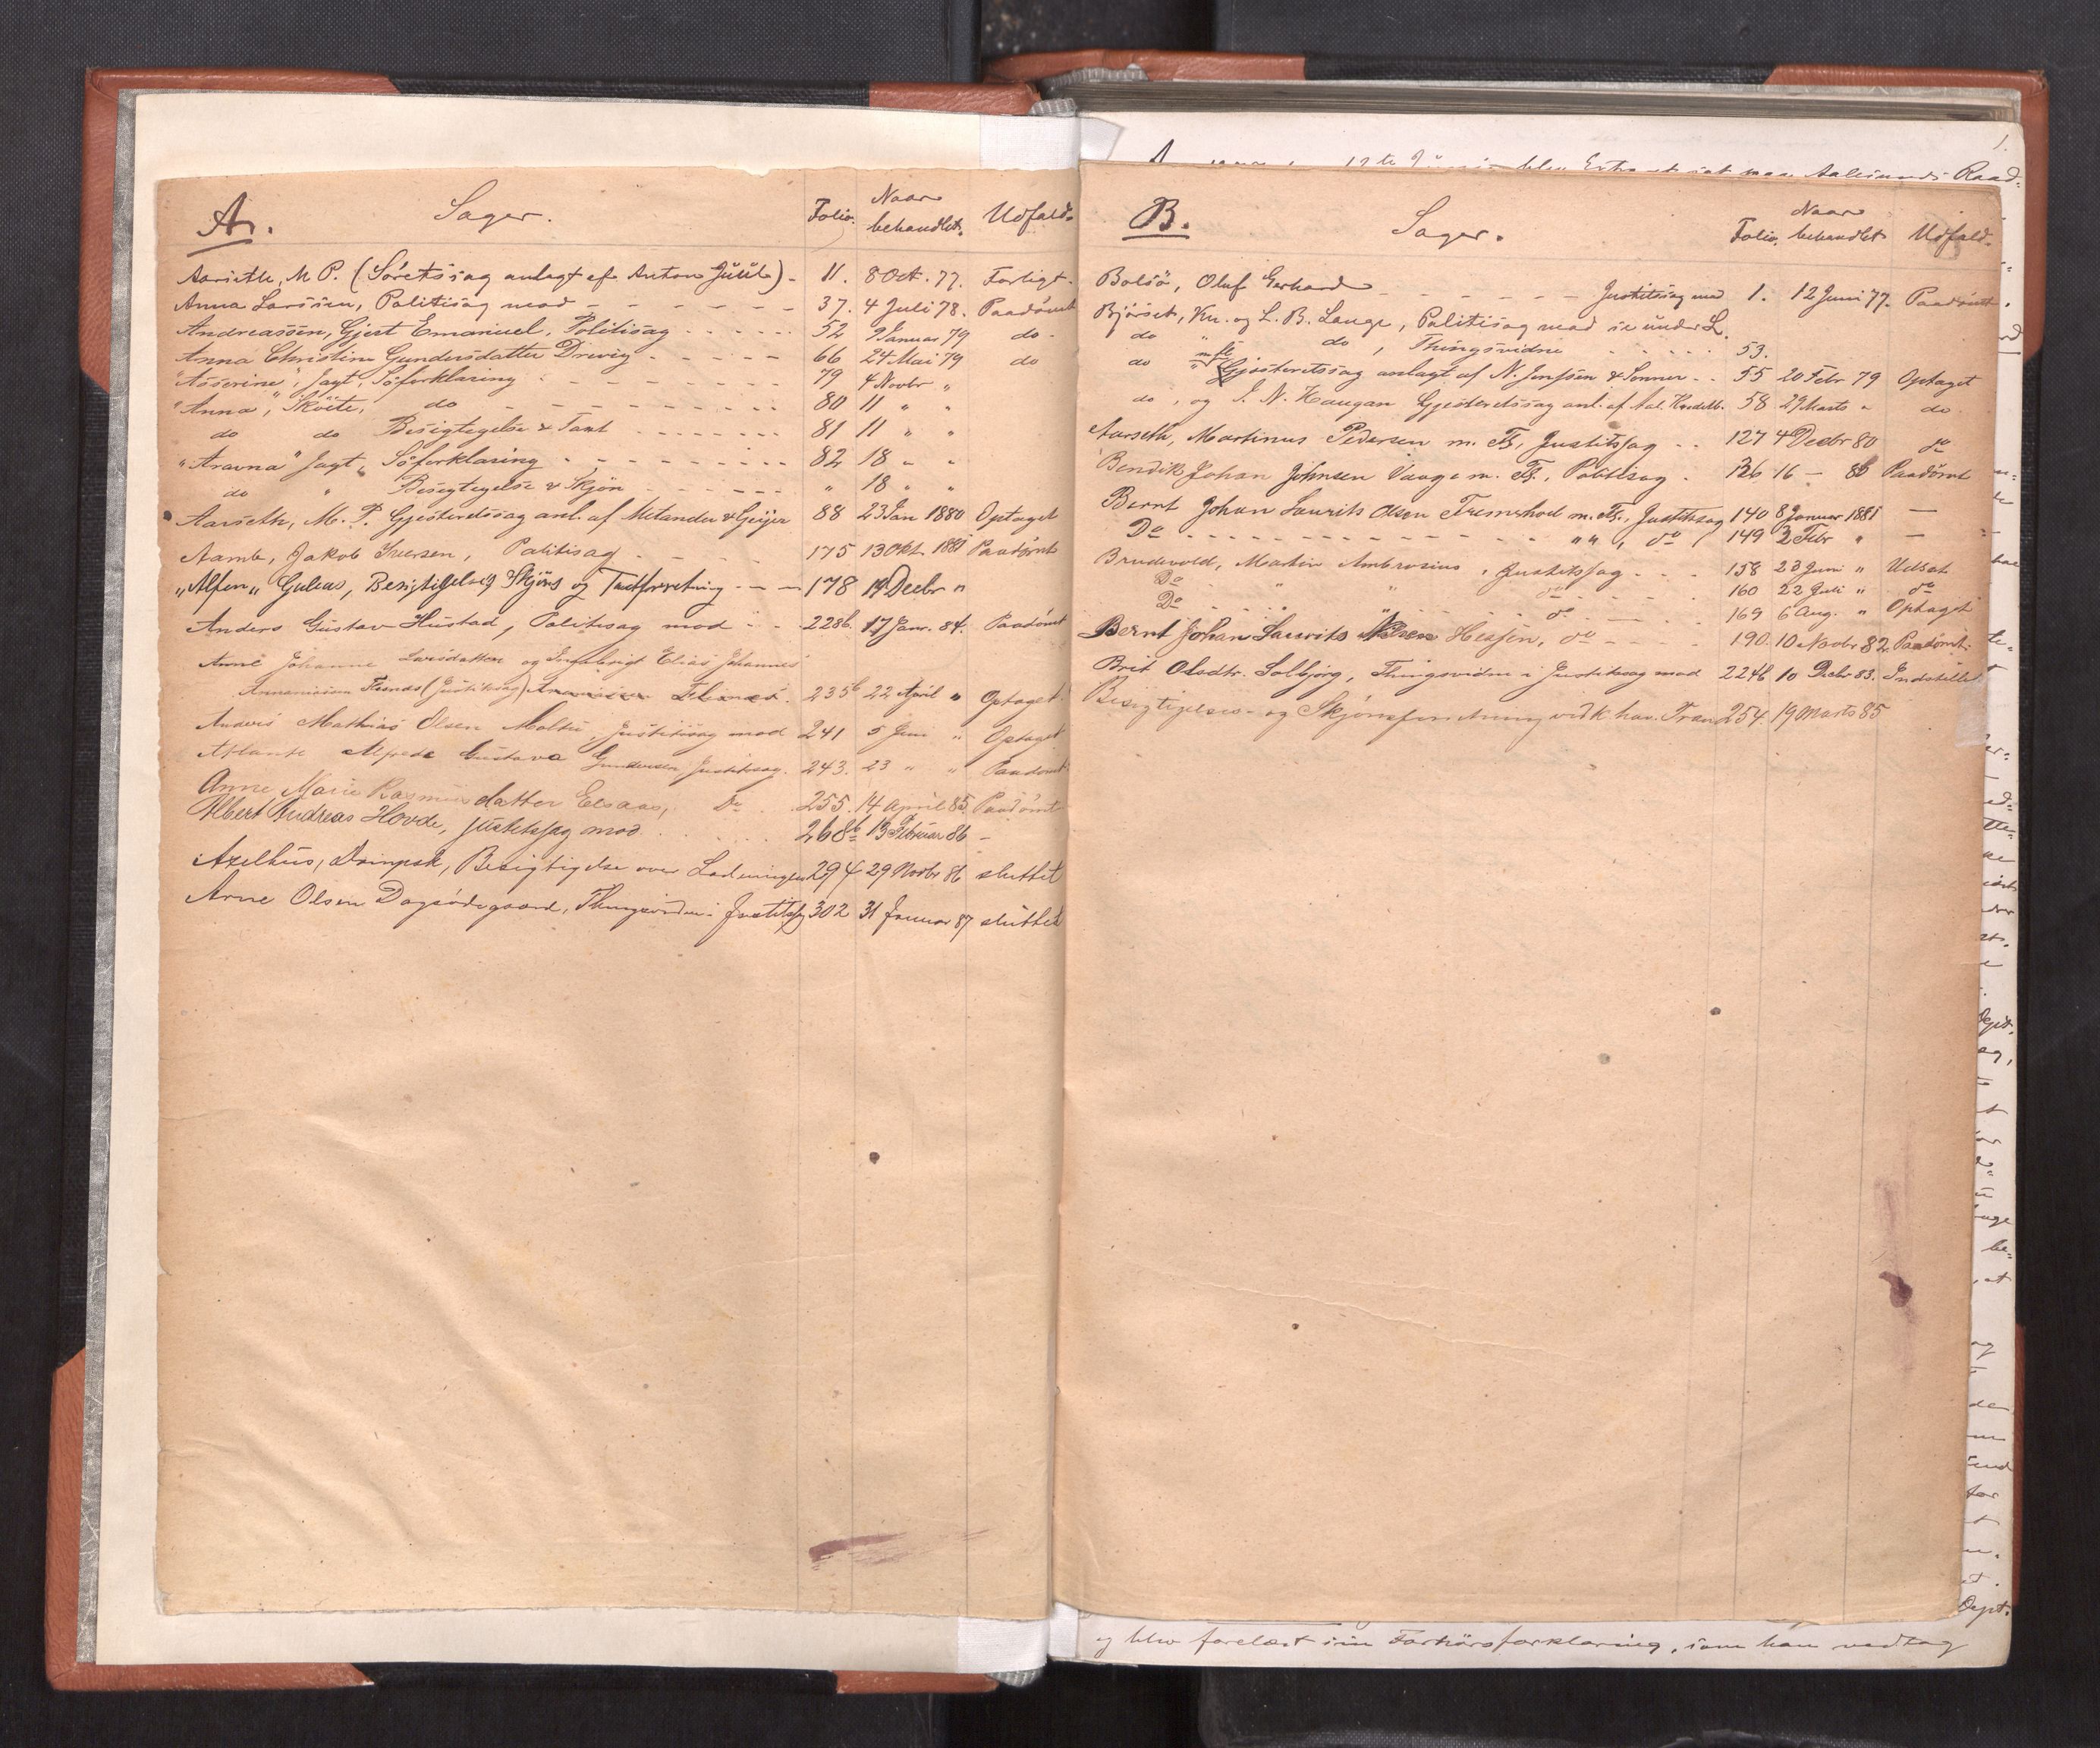 A.
Sager.
Folio.
Naar behandlet.
Udfald.
Aarseth, M. P. (Söretssag anlagt af Anton Juül) - 11. 8 Oct. 77. Forligt.
Anna Larssen, Politisag mod - - - - - 37. 4 Juli 78. Paadømt
Andreassen, Gjert Emanuel, Politisag - - - - - 52 9 Januar 79 do -
Anna Christine Gundersdatter Drevig - - - - 66 24 Mai 79 do
"Asserine", Jagt, Söforklaring - - - - - - - 79 4 Novbr "
"Anna", Sköite, do - - - - - - - - - 80 11 " "
do do Besigtigelse & Taxt - - - - - - 81 11 " "
"Aravna" Jagt, Söforklaring - - - - - - - 82 18 " "
do " Besigtigelse & Skjön - - - - - " 18 " "
Aarseth, M. P. Gjesteretssag anl. af Metander & Geijer 88 23 Jan 1880 Optaget
Aamb, Jakob Iversen, Politisag - - - - 175 13 Okt. 1881 Paadømt
"Alfen" Gulens, Besigtigelses, Skjöns og Taxtforretning - - - 178 19 Decbr "
Anders Gustav Hustad, Politisag mod - - 228b. 17 Janr. 84. Paadømt
Anne Johanne Larsdatter og Ingebrigt Elias Johannes
Annaniassen Flemes (Justitssag) 235b 22 April " Optaget.
Anders Mathias Olsen Moltu, Justitssag mod 241 5 Juni " Optaget
Atlante Alfrede Gustava Gundersen Justitssag. 243. 23 " " Paadømt
Anne Marie Rasmusdatter Elsaas, Do 255. 14 April 85. Paadømt
Albert Andreas Hovde, Justitssag mod . . . . . 268b 13 Februar 86 -
Axelhus, Dampsk, Besigtigelse over Ladningen 294 29 Novbr 86 sluttet
Arne Olsen Dagsödegaard, Thingsvidne i Justitssag 302 31 Januar 87 sluttet
B.
Sager.
Folio.
Naar behandlet
Udfald.
Bolsö, Oluf Gerhard - - - - - - Justitssag mod 1. 12 Juni 77. Paadømt
Bjørset, Kn. og L. B. Lange, Politisag mod se under L.
do " do, Thingsvidne - - - - - 53.
do " m fl Gjesteretssag anlagt af N. Jenssen & Sønner - - 55 20 Febr 79 Optaget
do, og J. N. Haugan Gjesteretssag anl. af Aal. Kreditb. 58 29 Marts " do
Aarseth, Martinus Pedersen m. Fl, Justitssag - - 127 4 Decbr 80 do
Bendik Johan Johnsen Vaage m. Fl., Politisag - 136 16 - 80 Paadømt
Bernt Johan Laurits Olsen Fremerhod m. Fl., Justitssag 140 8 Januar 1881 -
Do - - - - - - - - - - " ", do 149 3 Febr " -
Brudevold, Martin Ambrosius, Justitssag - - - 158 23 Juni " Udsat
Do " " do - - - - - 160 22 Juli " do
Do - - - - " do - - - - 169 6 Aug. " Optaget
Bernt Johan Laurits Nilsen Hessen, do - - - - 190. 10 Novbr 82. Paadømt.
Brit Olsdtr. Solbjørg, Thingsvidne i Justitssag mod 224b. 10 Decbr 83. Indstillet
Besigtigelses- og Skjønsforretning vedk. hav. Tran 254. 19 Marts 85
1.
og blev forelæst sin Forhørsforklaring, som han vedtog